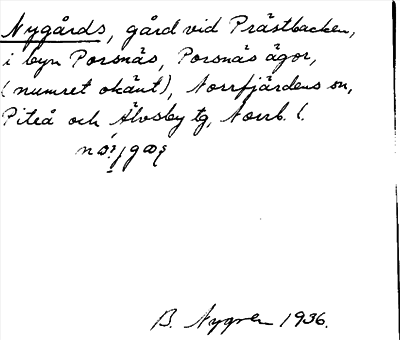 Nygårds, gård vid Prästbacken,
i byn Porsnäs, Porsnäs ägor,
(numret okänt), Norrfjärdens sn,
Piteå och Älvsby tg, Norrb. l.
B. Nygren 1936.